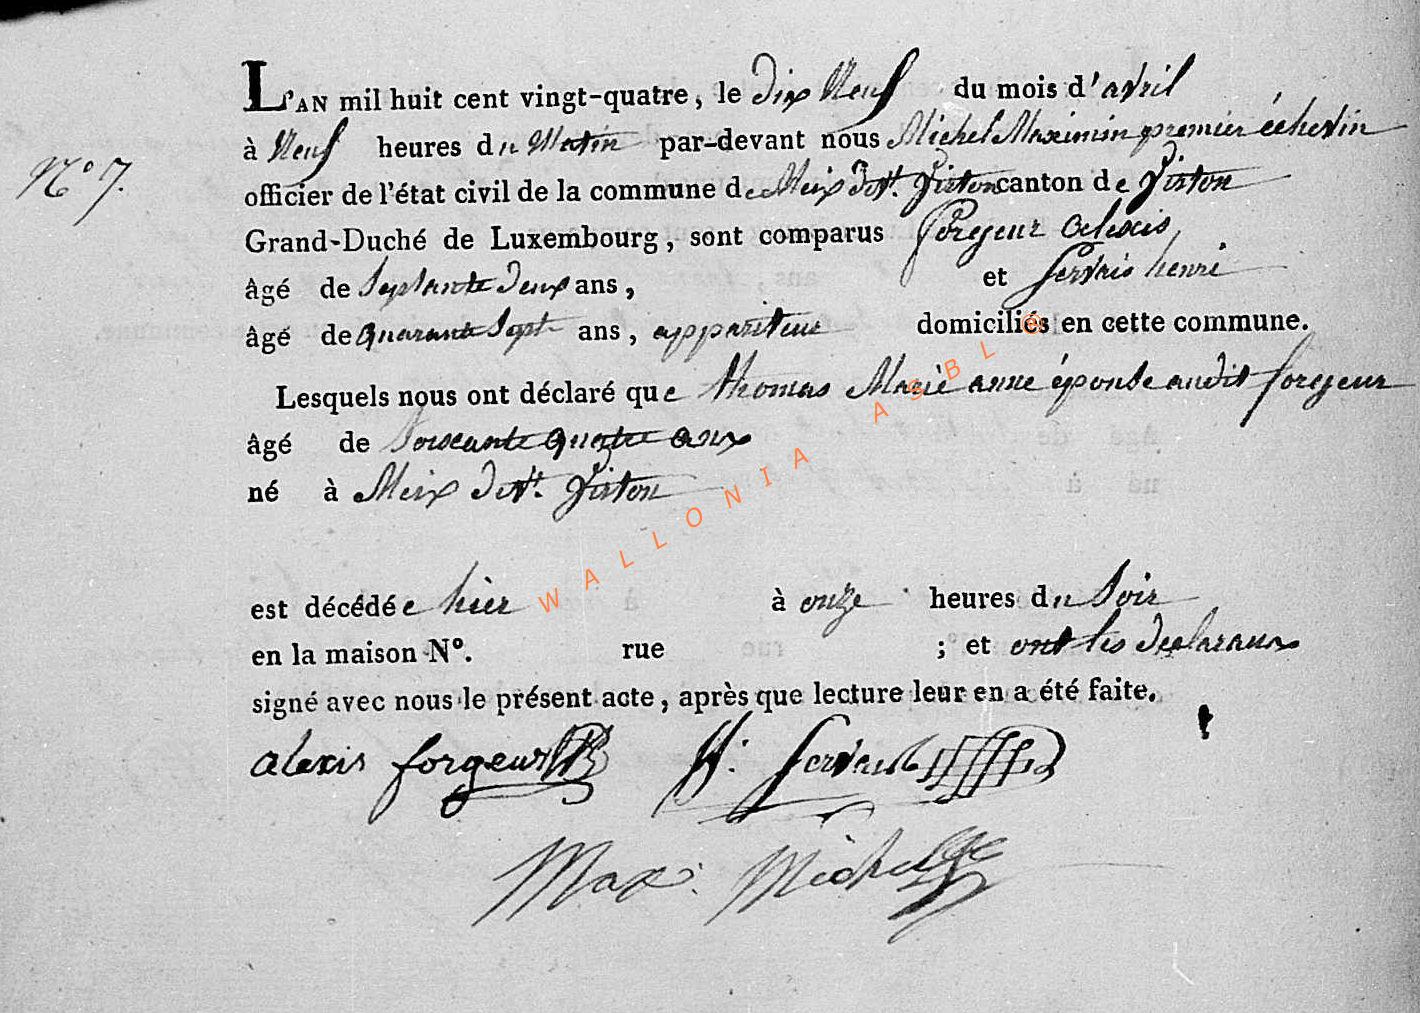 L'AN mil huit cent vingt-quatre, le dix neuf du mois d'avril
à neuf heures du matin par-devant nous Michel Maximin premier échevin
N° 7.
officier de l'état civil de la commune de Meix devt. Virton canton de Virton
Grand-Duché de Luxembourg, sont comparus forgeur alexis
âgé de septante deux ans, et servais henri
âgé de quarante sept ans, appariteur domiciliés en cette commune.
Lesquels nous ont déclaré que thomas Marie anne épouse audit forgeur
âgé de soixante quatre ans
né à Meix devt. Virton
est décédée hier à onze heures du soir
en la maison N°. rue ; et ont les declarans
signé avec nous le présent acte, après que lecture leur en a été faite.
alexis forgeur H. servais
Max. Michel
WALLONIA ASBL ©